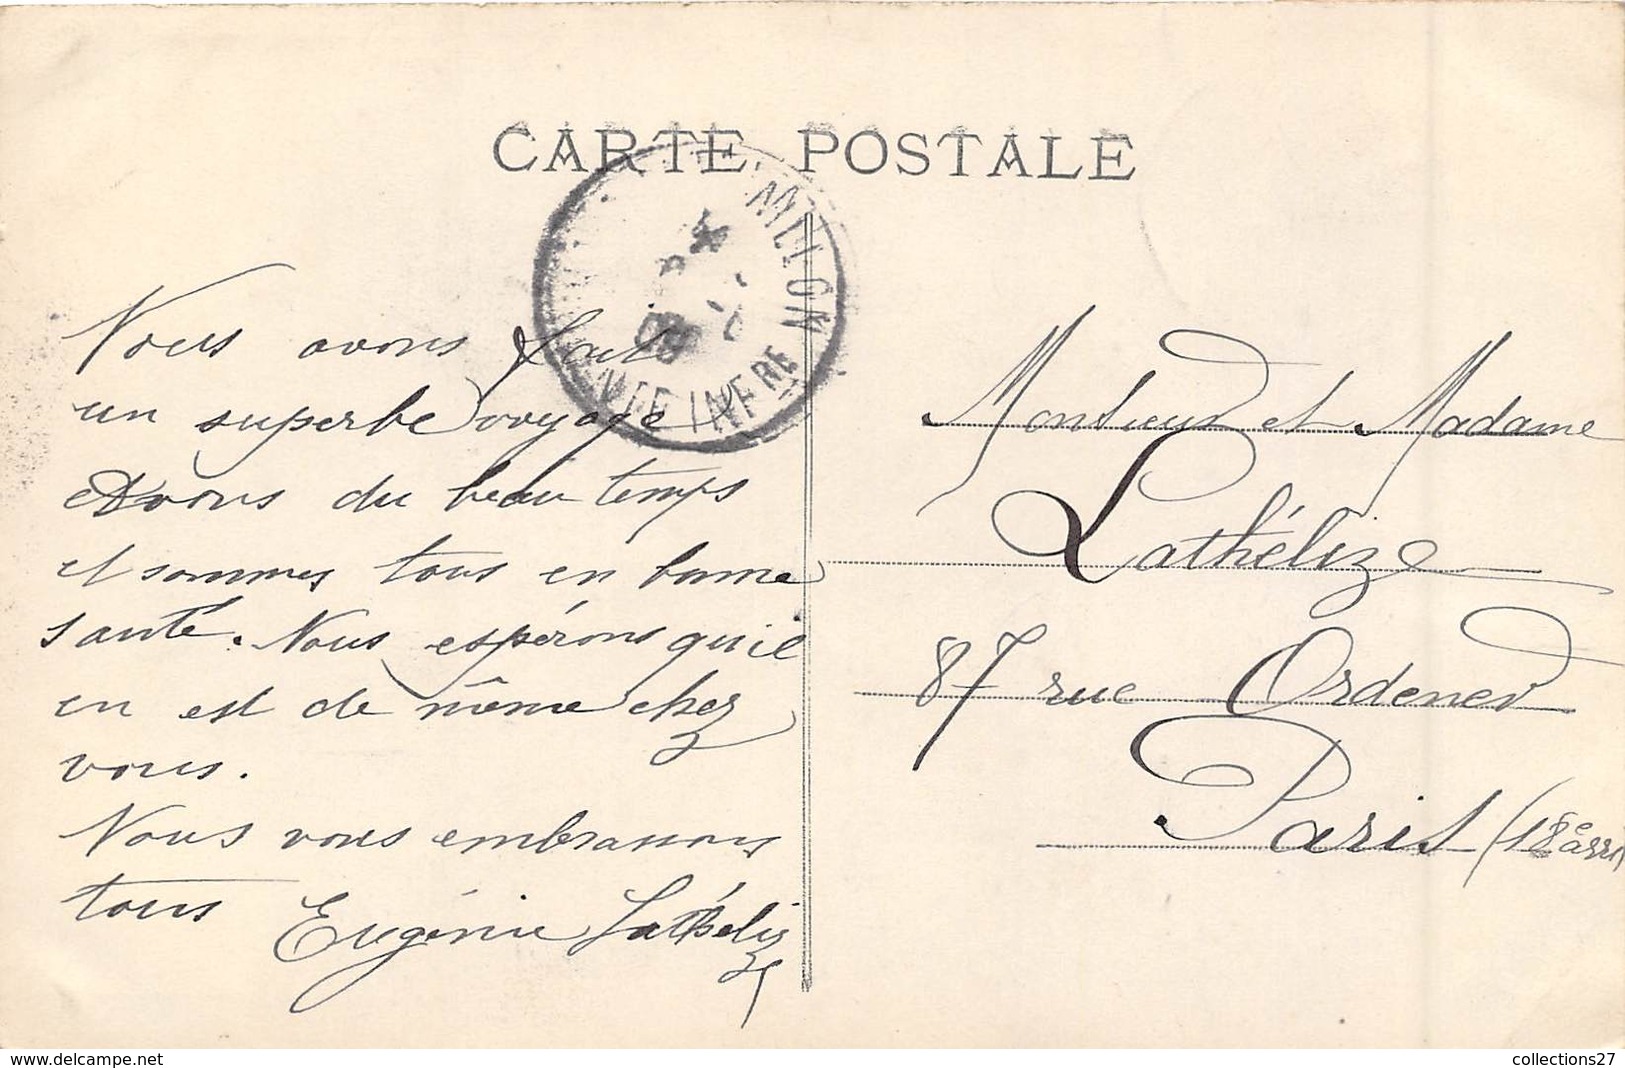 CARTE POSTALE
MILLON
INFRE
Nous avons fait
un superbe voyage
Avons du beau temps
et sommes tous en bonne
santé. Nous espérons qu'il
en est de même chez
vous.
Nous vous embrassons
tous Eugénie Lathéliz
Monsieur et Madame
Lathélize
87 rue Ordener
Paris (18e arrt
www.delcampe.net
collections27